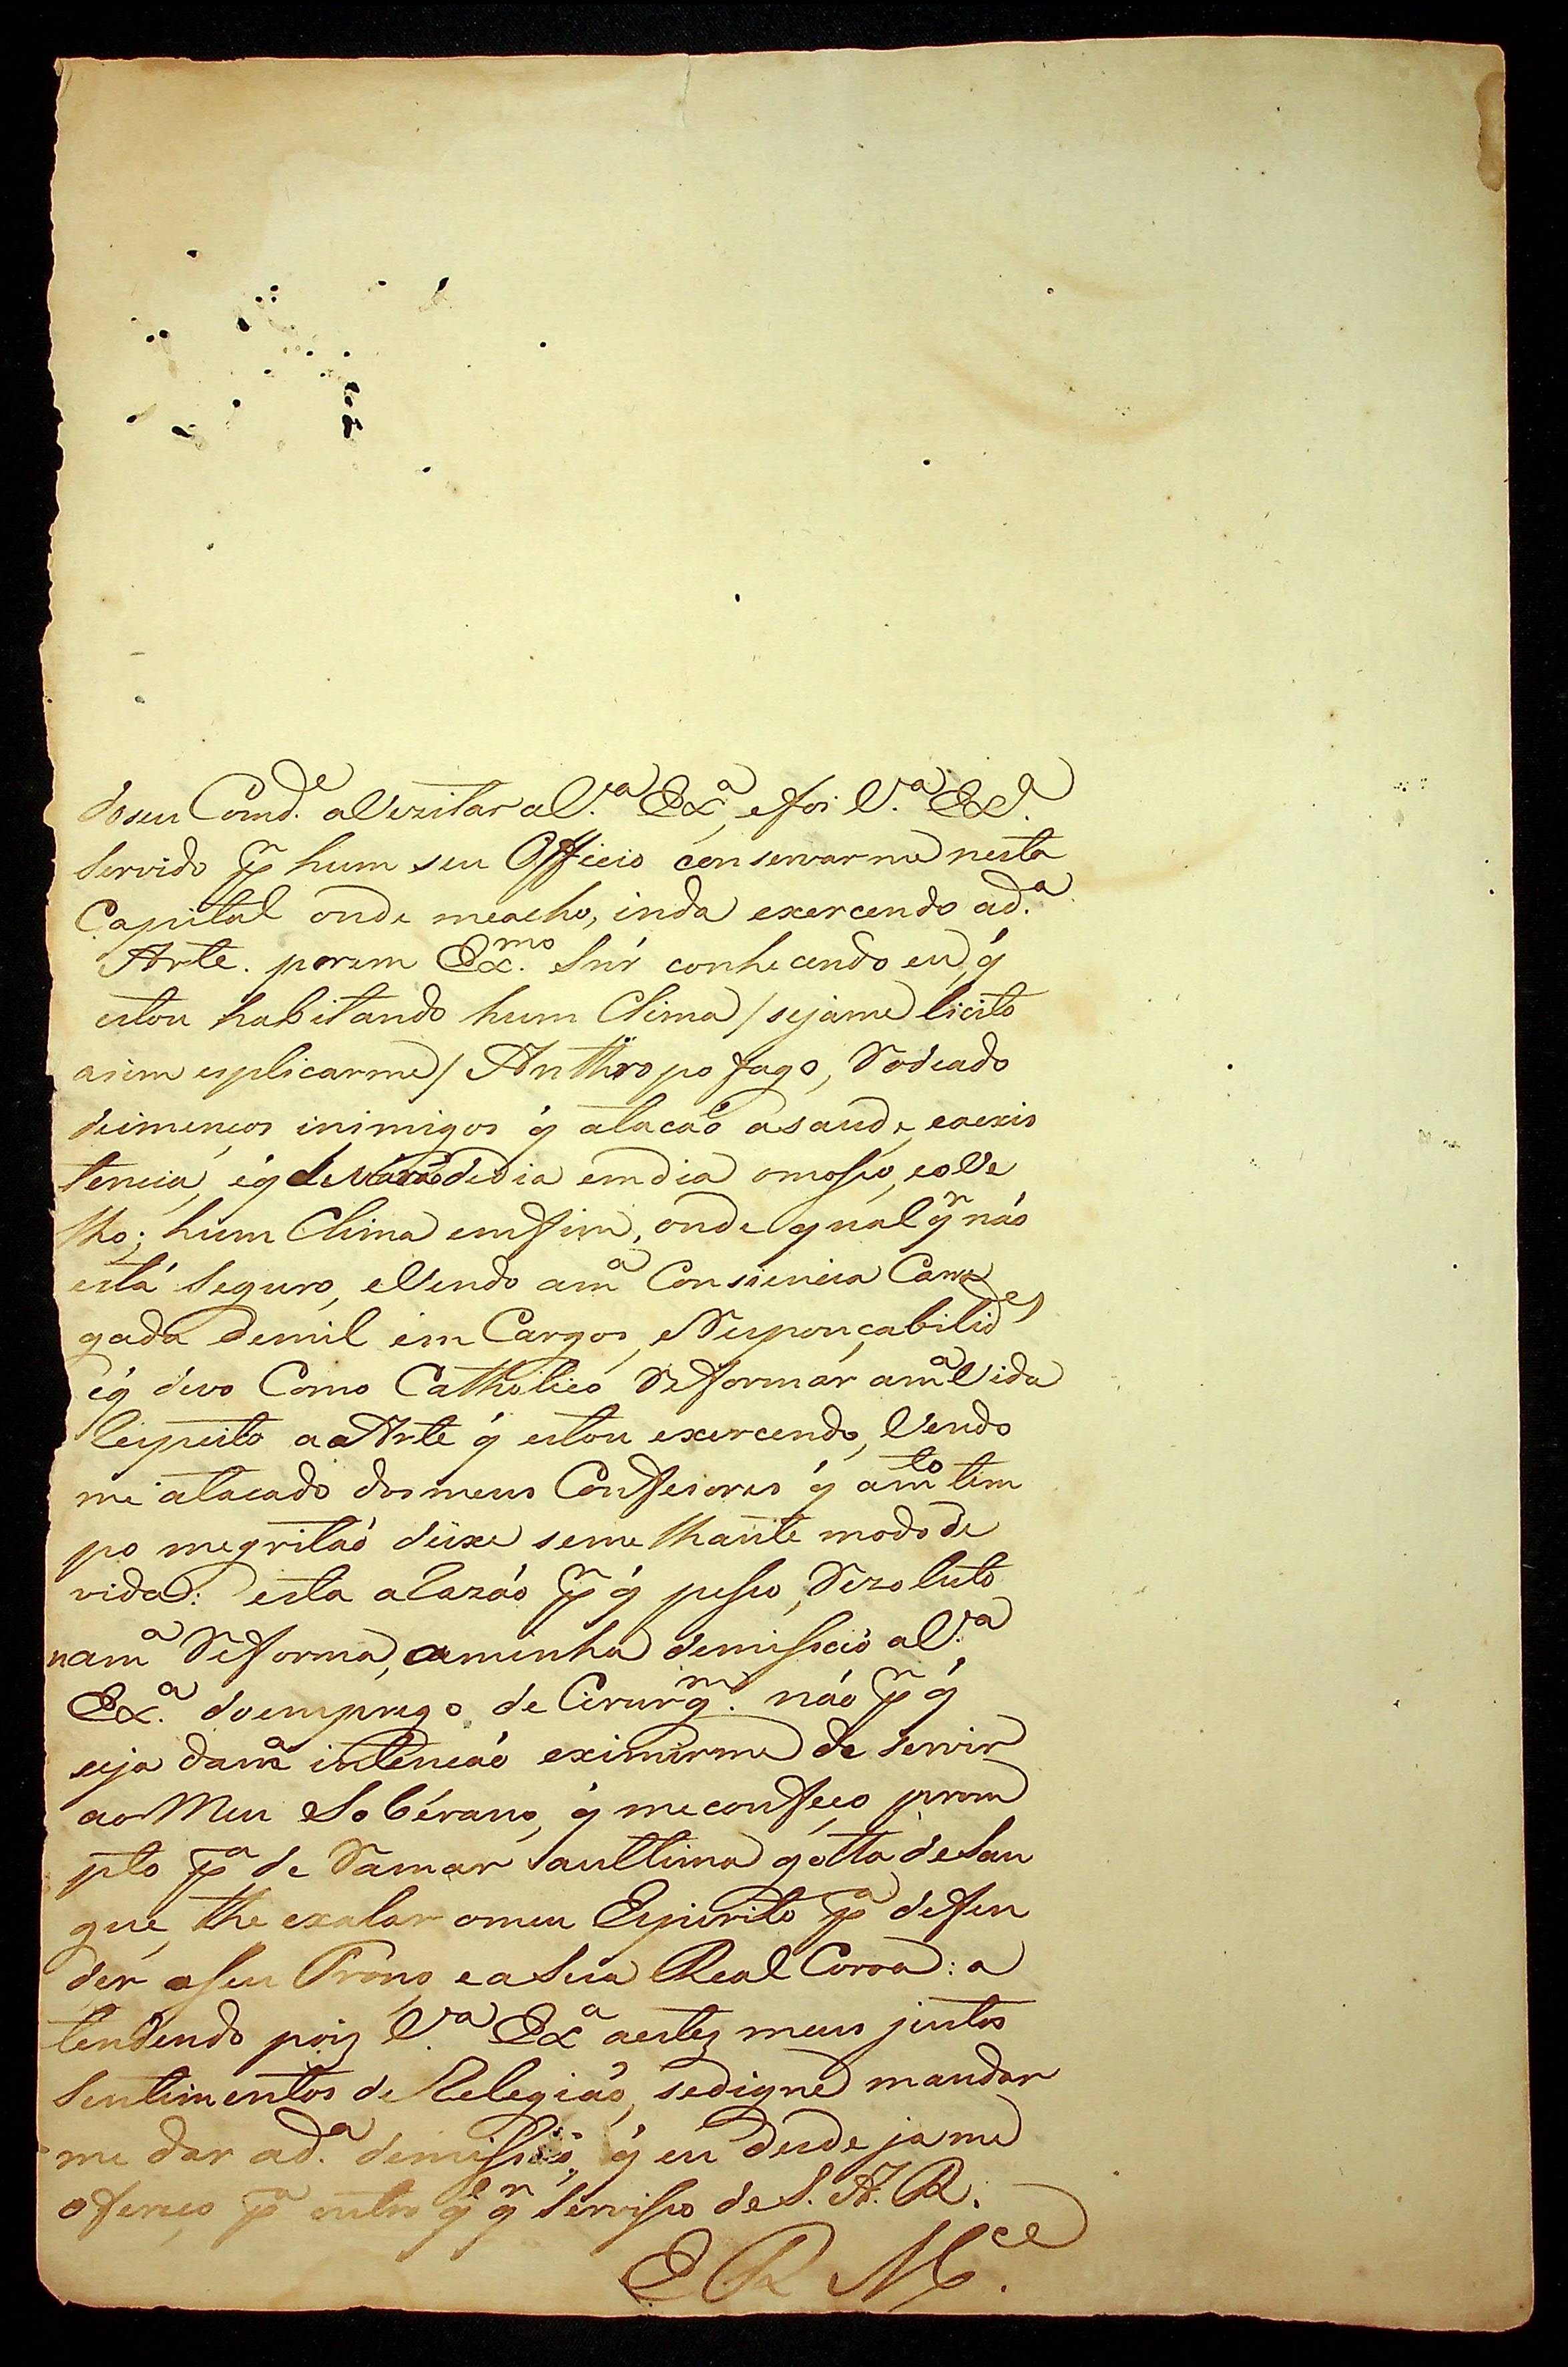 doseu Comd.e aVezitar aV.a Ex.a, efoi V.a Ex.a
Servido pr hum seu Officio conservarme nesta
Capital onde meacho, inda exercendo ad.a
Arte. porem Ex.mo Snr̃ conhecendo eu, q̃
estou habitando hum Clima / sejame licito
asim esplicarme / Anthropofago, Rodeado
deimencos inimigos q̃ atacaõ asaude, eaexis
tencia, éq̃ dedia emdia omosso, eoVe
lho; hum Clima emfim, onde qualq̃r naõ
está Seguro, eVendo am.a Consiencia Carre
gada demil emCargos, eResponçabilid.es
éq̃ devo Como Catholico Reformar am.a Vida
Respeito aaArte q̃ estou exercendo, Vendo
me atacado dosmeus Confesores q̃ am.to tem
po megritaõ deixe semelhante modode
vida: esta aRazaõ pr q̃ pesso, Rezoluto
nam.a Reforma, aminha demissaõ aV.a
Ex.a doemprego de Cirurg.m naõ pr q̃
seja dam.a intencaõ eximirme de Servir
ao Meu Soberano, q̃ meconfeço prom
pto p.a deRamar aultima gotta deSan
gue, lhe exalar omeu Espirito p.a defen
der oseu Trono, eaSua Real Coroa: a
tendendo poiz V.a Ex.a aestez meus justos
Sentimentos deRelegiaõ, sedigne mandar
me dar ad.a demissaõ, q̃ eu desde jame
ofereço p.a outro q̃q̃r Servisso de S. A. R.
E R M.ce